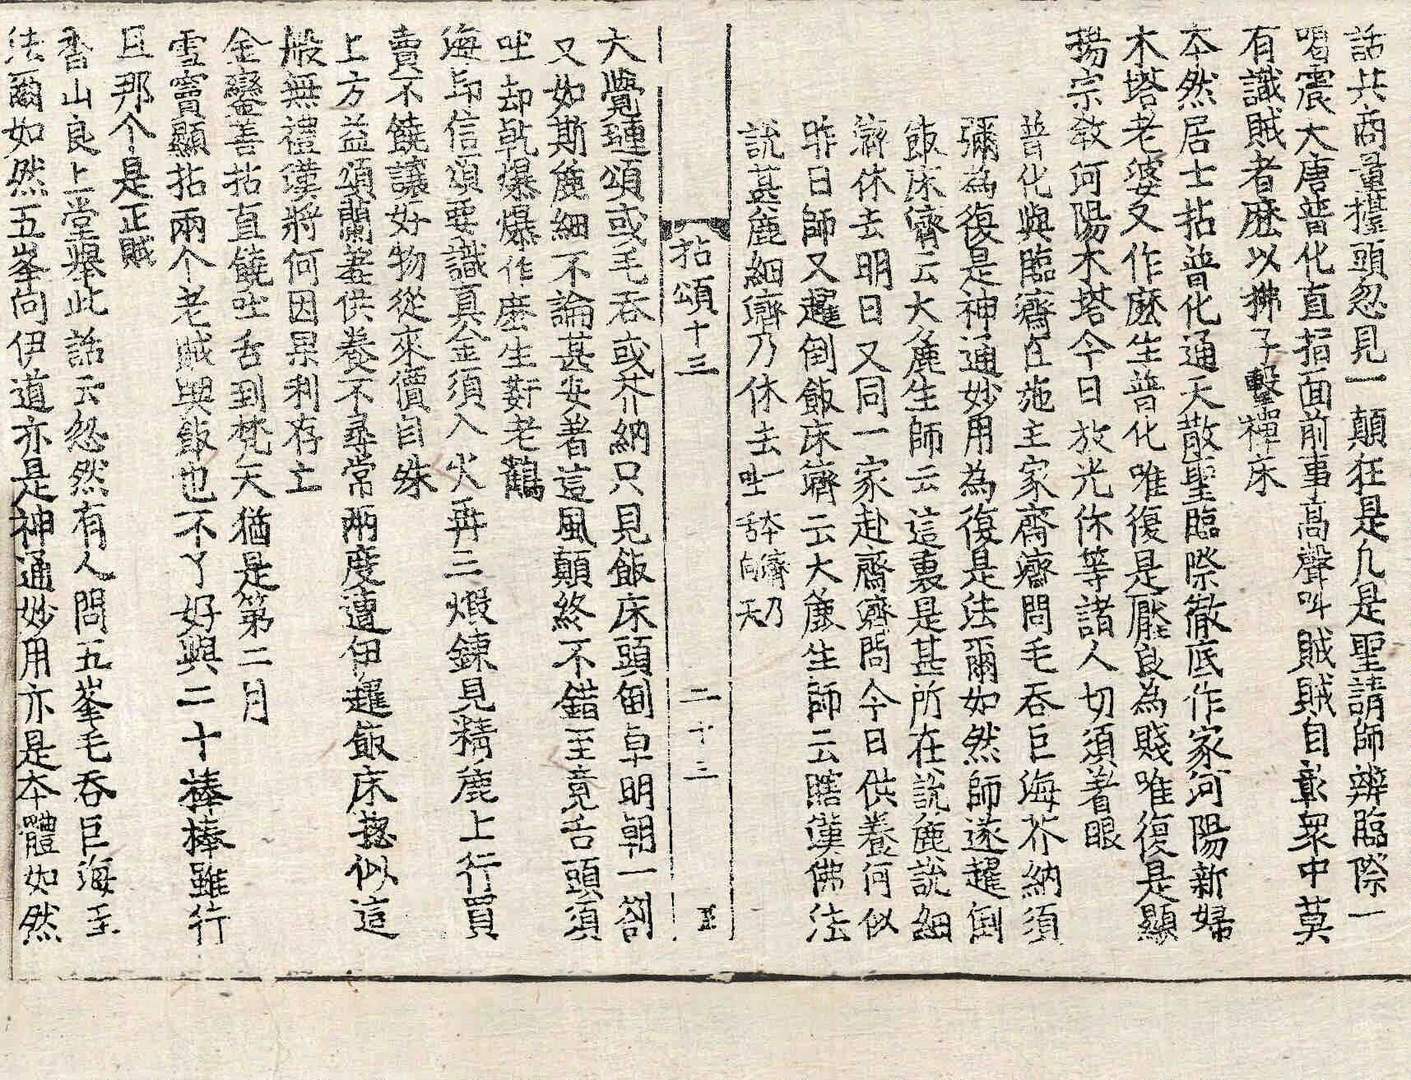 話共商量擡頭忽見一顛狂是凢是聖請師辨臨際一
喝震大唐普化直指面前事高聲叫賊賊自彰衆中莫
有識賊者麽以拂子擊禪床
本然居士拈普化通天散聖臨際徹底作家河陽新婦
木塔老婆又作麽生普化唯復是壓良為賤唯復是顯
揚宗教河陽木塔今日放光你等諸人切須著眼
普化與臨齊在施主家齋濟問毛吞巨海芥納須
彌為復是神通妙用為復是法爾如然師遂趯倒
飯床濟云大麁生師云這裏是甚所在說麁說細
濟休去明日又同一家赴齋濟問今日供養何似
昨日師又趯倒飯床濟云大麁生師云瞎漢佛法
說甚麁細濟乃休去一本濟乃吐舌向天
拈頌十三 二十三
大覺璉頌或毛吞或芥納只見飯床頭倒卓明朝一劄
又如斯麁細不論甚安着這風顛終不錯至竟舌頭須
吐却乾爆爆作麽生䴏老鶴
海印信頌要識真金須入火再三煅鍊見精麁上行買
賣不饒讓好物從來價自殊
上方益頌闌羞供養不尋常兩度遭伊趯飯床揔似這
般無禮漢將何因果利存亡
金鑾善拈直饒吐舌到梵天猶是第二月
雪竇顯拈兩个老賊與飯也不丫好與二十棒棒雖行
且那个是正賊
香山良上堂舉此話云忽然有人問五峯毛吞巨海至
法爾如然五峯向伊道亦是神通妙用亦是本體如然